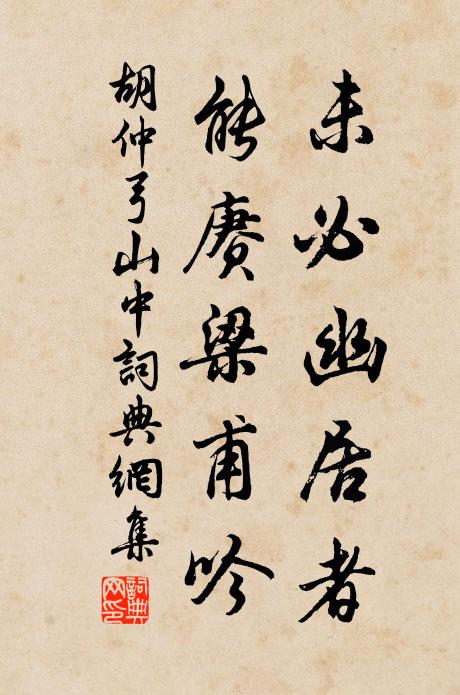 未必幽居者
能賡梁甫吟
胡仲弓山中詞典網集
詞典網印